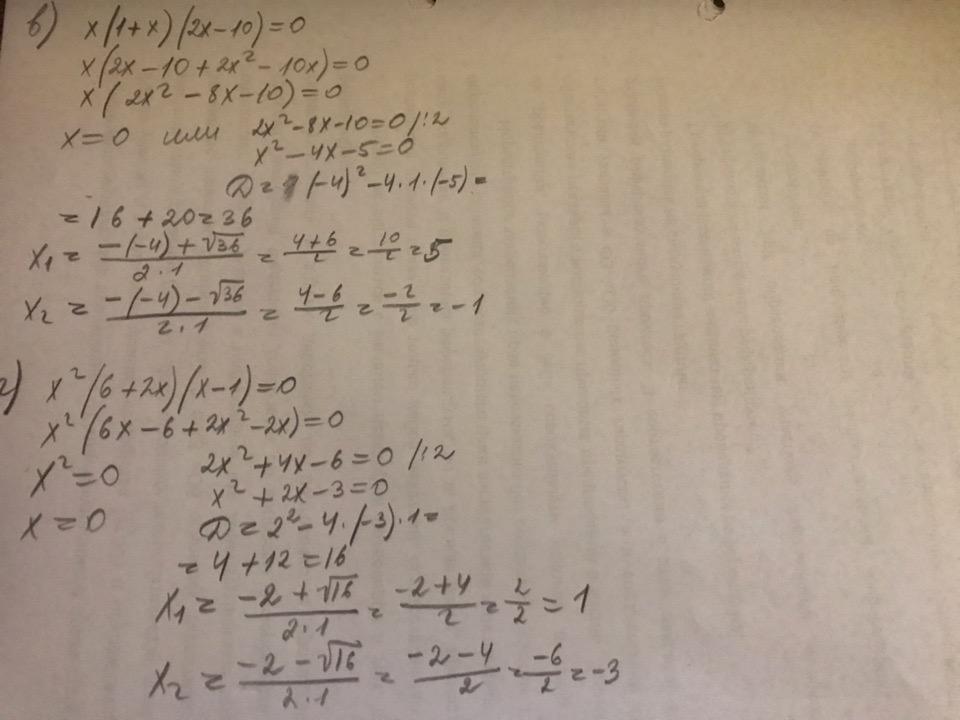 в) x(1+x)(2x-10)=0
x(2x-10+2x²-10x)=0
x(2x²-8x-10)=0
x=0 или 2x²-8x-10=0 /:2
x²-4x-5=0
D=(-4)²-4·1·(-5)=
=16+20=36
x₁ = (-(-4)+√36)/(2·1) = (4+6)/2 = 10/2 = 5
x₂ = (-(-4)-√36)/(2·1) = (4-6)/2 = -2/2 = -1
г) x²(6+2x)(x-1)=0
x²(6x-6+2x²-2x)=0
x²=0 2x²+4x-6=0 /:2
x²+2x-3=0
x=0 D=2²-4·(-3)·1=
=4+12=16
x₁ = (-2+√16)/(2·1) = (-2+4)/2 = 2/2 = 1
x₂ = (-2-√16)/(2·1) = (-2-4)/2 = -6/2 = -3